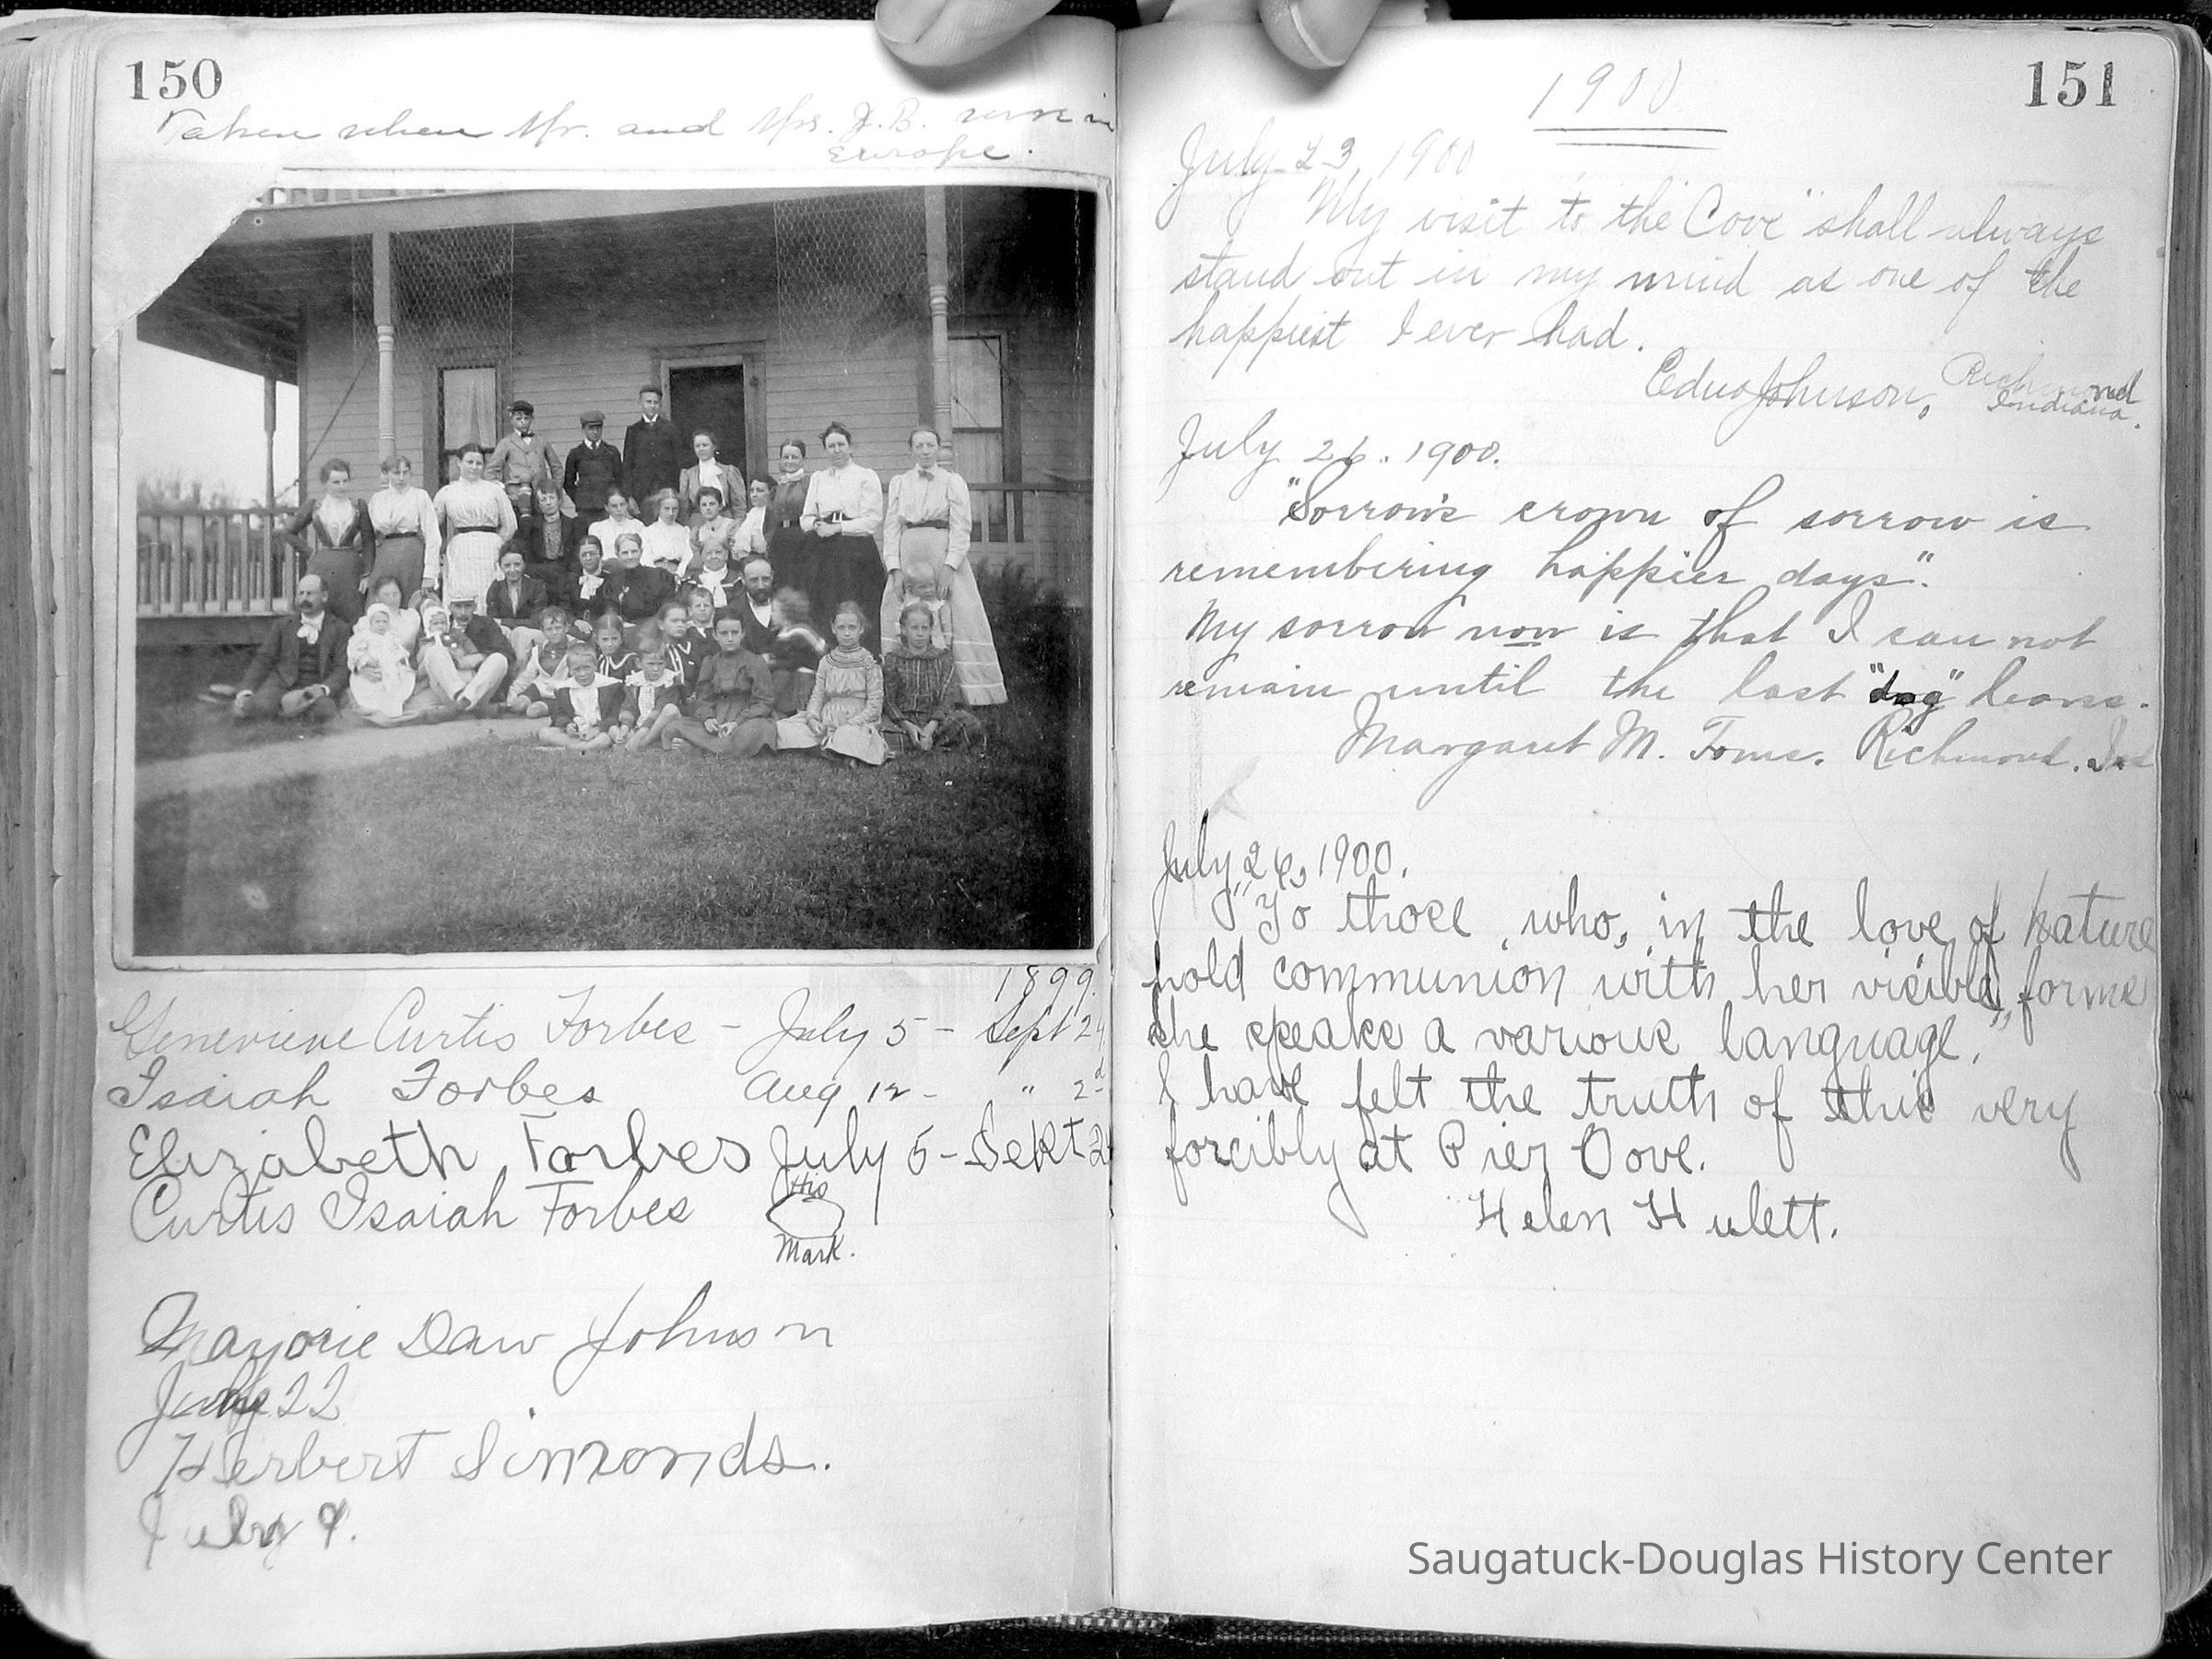 150
Taken when Mr. and Mrs. J.B. were in
Europe.
1899.
Genevieve Curtis Forbes - July 5 - Sept 2
Isaiah Forbes Aug 12 - " 2d
Elizabeth Forbes July 5 - Sept 2
Curtis Isaiah Forbes His
Mark.
Marjorie Daw Johnson
July 22
Herbert Simonds.
July 9.
151
1900
July 23, 1900
My visit to the Cove" shall always
stand out in my mind as one of the
happiest I ever had.
Edna Johnson, Richmond
Indiana.
July 26. 1900.
"Sorrow's crown of sorrow is
remembering happier days".
My sorrow now is that I can not
remain until the last "dog" leaves.
Margaret M. Toms. Richmond. Ind
July 26, 1900.
"To those who, in the love of nature
hold communion with her visible forms
she speaks a various language."
I have felt the truth of this very
forcibly at Pier Cove.
Helen Hulett.
Saugatuck-Douglas History Center